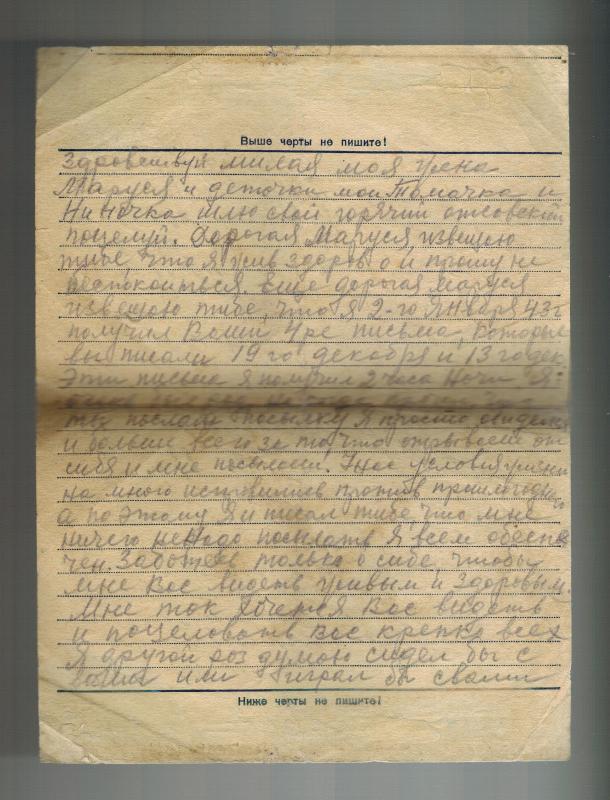 Выше черты не пишите!
Здровствуй милая моя жена
Маруся и деточки мои Томачка и
Ниночка шлю свой горячий отцовский
поцелуй. Дорогая Маруся извещаю
тибе, что я жив здоров и прошу не
беспокоиться. Еще дорогая Маруся
извещаю тибе, что я 2-го Января 43 г
получил Ваши 4ре письма, которые
вы писали 19 го декабря и 13 го дек
Эти письма я получил 2 часа Ночи я
послала посылку я просто обиделся
и больше всего за то, что отрываеш от
себя и мне посылаеш. У нас условия жизни
на много исправились против прошлогоднего
а по этому я и писал тибе, что мне
ничего не надо посылать Я всем обеспе
чен. Заботься только о себе, чтобы
мне Вас видеть живым и здоровым.
Мне так хочется Вас видеть
и поцеловать Вас крепко всех
Я другой раз думаю сидел бы с
вами или играл бы с вами
Ниже черты не пишите!